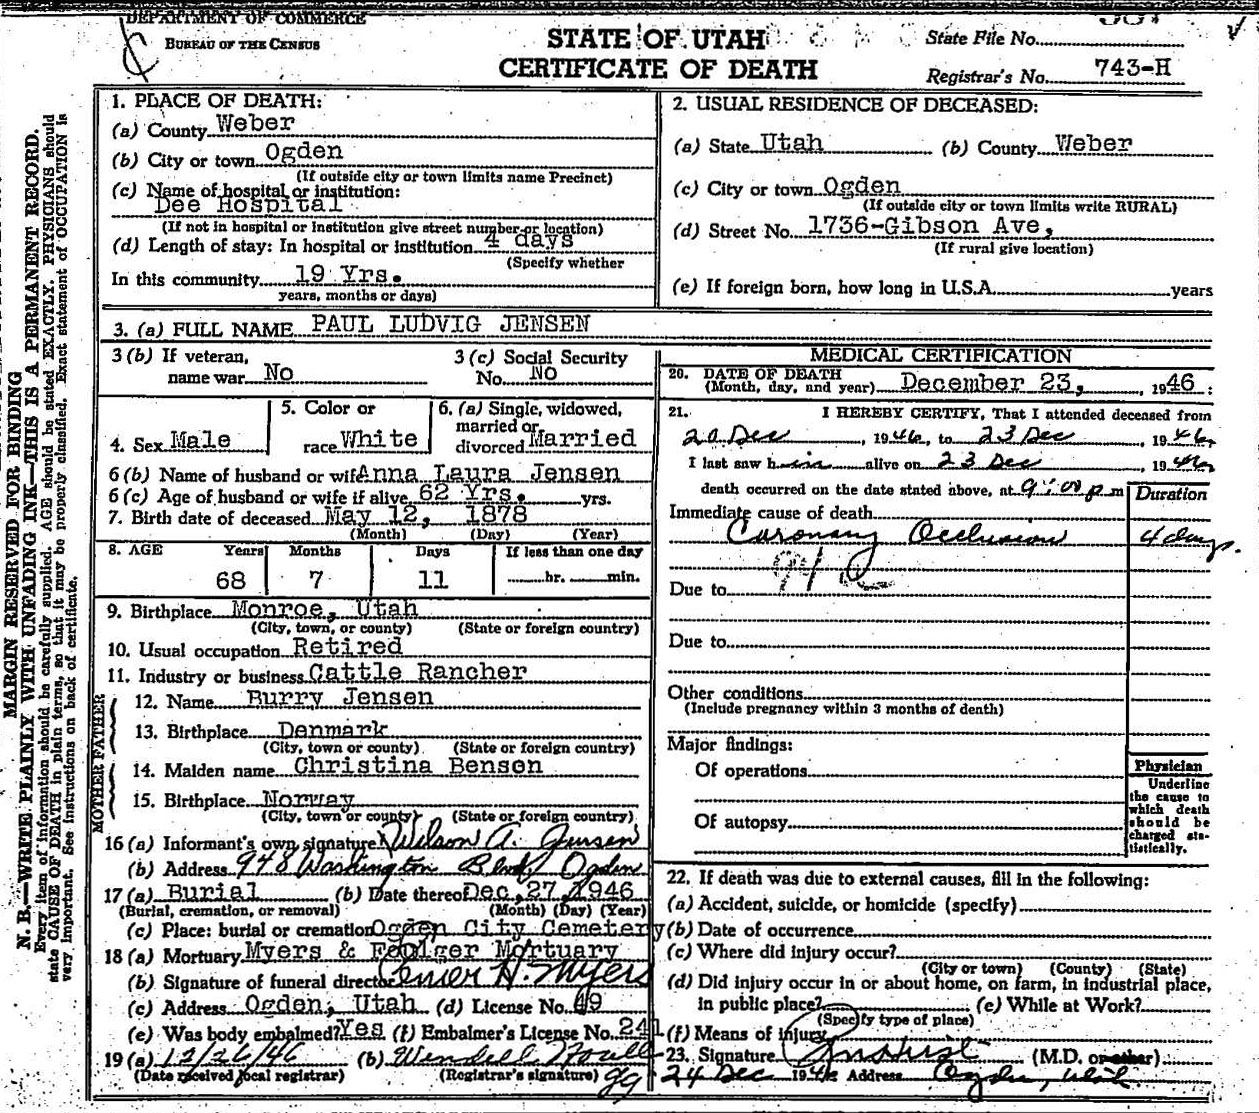 DEPARTMENT OF COMMERCE
BUREAU OF THE CENSUS
STATE OF UTAH
CERTIFICATE OF DEATH
State File No.
Registrar's No. 743-H
MARGIN RESERVED FOR BINDING
N. B.—WRITE PLAINLY WITH UNFADING INK—THIS IS A PERMANENT RECORD.
Every item of information should be carefully supplied. AGE should be stated EXACTLY. PHYSICIANS should
state CAUSE OF DEATH in plain terms, so that it may be properly classified. Exact statement of OCCUPATION is
very important. See instructions on back of certificate.
1. PLACE OF DEATH:
(a) County Weber
(b) City or town Ogden
(If outside city or town limits name Precinct)
(c) Name of hospital or institution:
Dee Hospital
(If not in hospital or institution give street number or location)
(d) Length of stay: In hospital or institution 4 days
(Specify whether
In this community 19 Yrs.
years, months or days)
2. USUAL RESIDENCE OF DECEASED:
(a) State Utah (b) County Weber
(c) City or town Ogden
(If outside city or town limits write RURAL)
(d) Street No. 1736-Gibson Ave,
(If rural give location)
(e) If foreign born, how long in U.S.A. years
3. (a) FULL NAME PAUL LUDVIG JENSEN
3 (b) If veteran,
name war No
3 (c) Social Security
No. No
4. Sex Male
5. Color or
race White
6. (a) Single, widowed,
married or
divorced Married
6 (b) Name of husband or wife Anna Laura Jensen
6 (c) Age of husband or wife if alive 62 Yrs. yrs.
7. Birth date of deceased May 12, 1878
(Month) (Day) (Year)
8. AGE Years Months Days If less than one day
68 7 11 hr. min.
9. Birthplace Monroe, Utah
(City, town, or county) (State or foreign country)
10. Usual occupation Retired
11. Industry or business Cattle Rancher
FATHER
12. Name Burry Jensen
13. Birthplace Denmark
(City, town or county) (State or foreign country)
MOTHER
14. Maiden name Christina Benson
15. Birthplace Norway
(City, town or county) (State or foreign country)
16 (a) Informant's own signature Wilson A. Jensen
(b) Address 948 Washington Blvd, Ogden
17 (a) Burial (b) Date thereof Dec, 27, 1946
(Burial, cremation, or removal) (Month) (Day) (Year)
(c) Place: burial or cremation Ogden City Cemetery
18 (a) Mortuary Myers & Foulger Mortuary
(b) Signature of funeral director H. Myers
(c) Address Ogden, Utah (d) License No. 49
(e) Was body embalmed? Yes (f) Embalmer's License No. 241
19 (a) 12/26/46 (b) Wendell
(Date received local registrar) (Registrar's signature)
MEDICAL CERTIFICATION
20. DATE OF DEATH
(Month, day, and year) December 23, 1946
21. I HEREBY CERTIFY, That I attended deceased from
20 Dec, 1946, to 23 Dec, 1946
I last saw him alive on 23 Dec, 1946
death occurred on the date stated above, at 9:00 p m
Duration
Immediate cause of death
Coronary Occlusion 4 days.
94 a
Due to
Due to
Other conditions
(Include pregnancy within 3 months of death)
Major findings:
Of operations
Of autopsy
Physician
Underline
the cause to
which death
should be
charged sta-
tistically.
22. If death was due to external causes, fill in the following:
(a) Accident, suicide, or homicide (specify)
(b) Date of occurrence
(c) Where did injury occur?
(City or town) (County) (State)
(d) Did injury occur in or about home, on farm, in industrial place,
in public place? (e) While at Work?
(Specify type of place)
(f) Means of injury
23. Signature (M.D. or other)
24 Dec 1946 Address Ogden, Utah